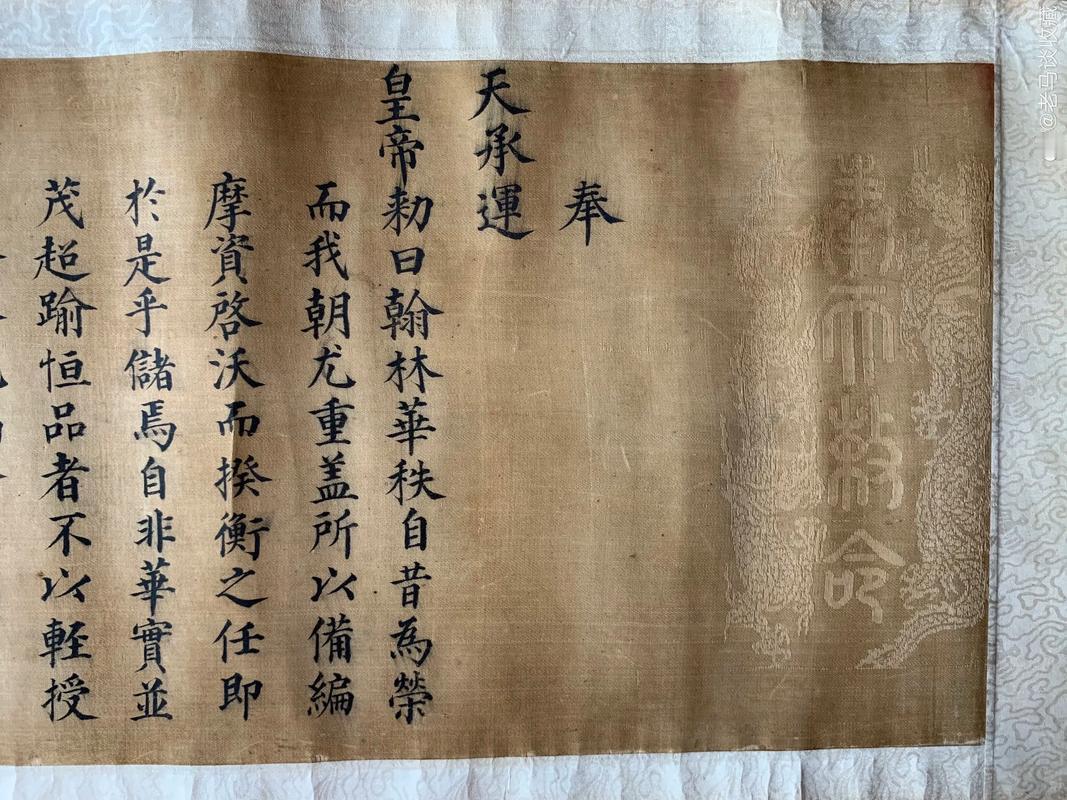 奉天敕命
奉
天承運
皇帝勅曰翰林華秩自昔為榮
而我朝尤重盖所以備編
摩資啓沃而揆衡之任即
於是乎儲焉自非華實並
茂超踰恒品者不以輕授
@老马谈收藏